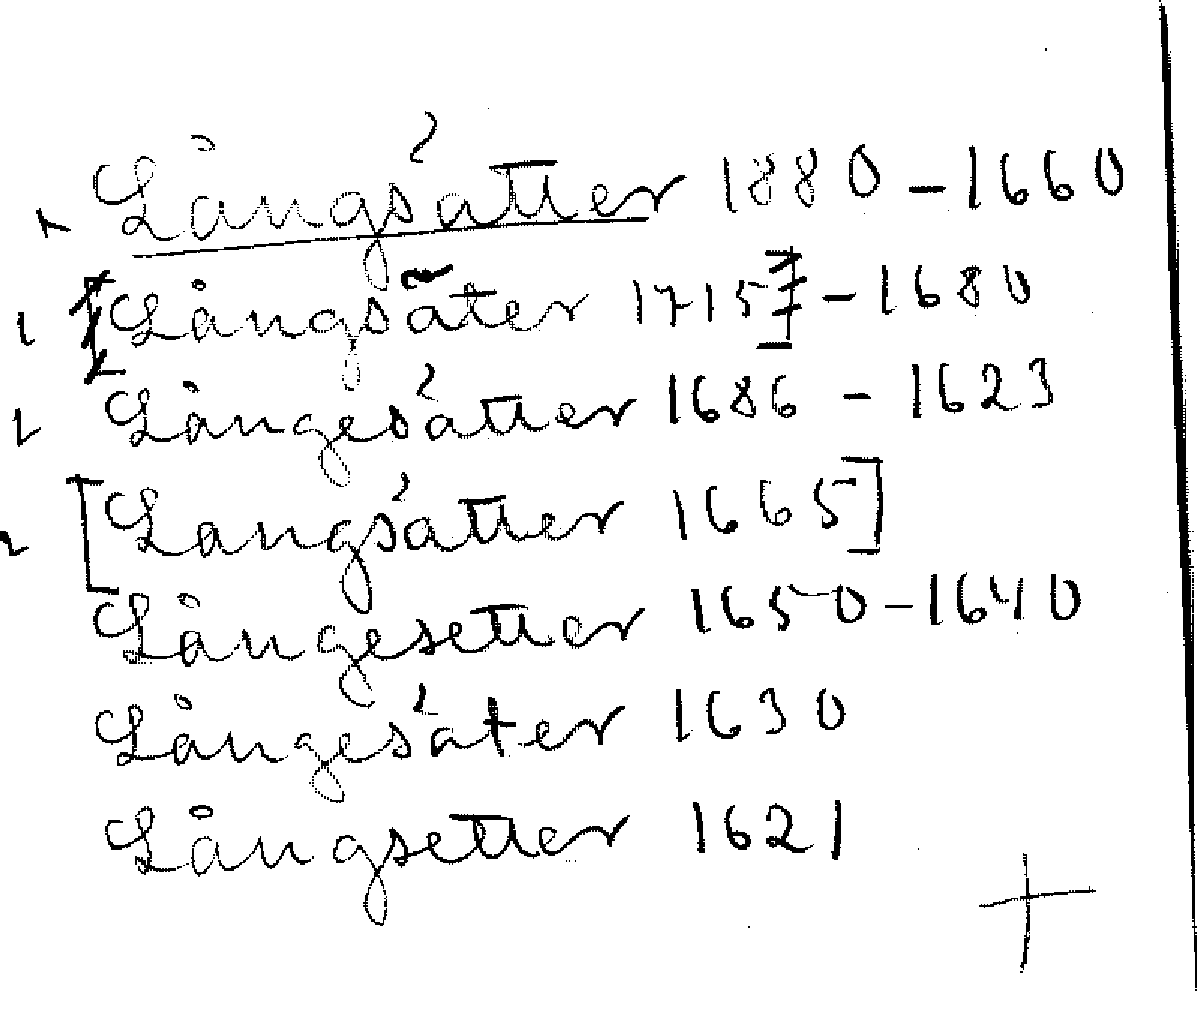 Långsätter 1880-1660
[Långsäter 1715] - 1680
Långesätter 1686 - 1623
[Langsätter 1665]
Långesetter 1650-1640
Långesäter 1630
Långsetter 1621